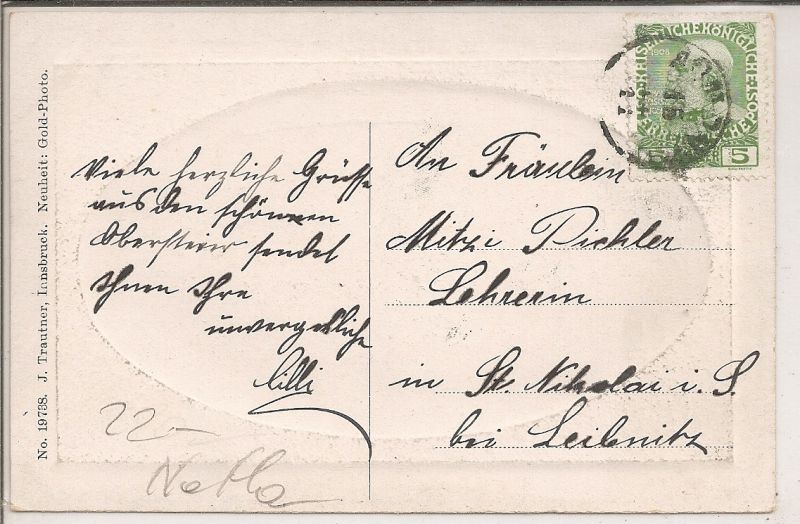 No. 19738. J. Trautner, Innsbruck. Neuheit: Gold-Photo.
Viele herzliche Grüsse
aus den schönnen
Obersteier sendet
Ihnen Ihre
unvergeßliche
Cilli
22-
An Fräulein
Mitzi Pichler
Lehrerin
in St. Nikolai i. S.
bei Leibnitz
1908
5